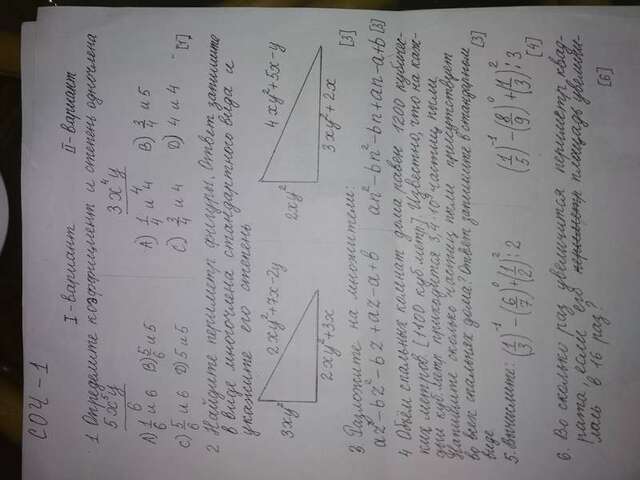 СОЧ - 1
I-вариант II-вариант
1 Определите коэффициент и степень одночлена
5x⁵y/6 3x⁴y/4
А) 1/6 и 6 В) 5/6 и 5 А) 1/4 и 4 В) 3/4 и 5
С) 5/6 и 6 D) 5 и 5 С) 3/4 и 4 D) 4 и 4 [1]
2 Найдите периметр фигуры. Ответ запишите
в виде многочлена стандартного вида и
укажите его степень
3xy² 2xy²+7x-2y 2xy²+3x
2xy² 4xy²+5x-y 3xy²+2x
[3]
3 Разложите на множители:
az²-bz²-bz+az-a+b an²-bn²-bn+an-a+b [3]
4 Объём спальных комнат дома равен 1200 кубичес-
ких метров. (1400 куб метр). Известно, что на каж-
дый куб.метр приходится 3,4·10⁹ частиц пыли
сколько частиц пыли присутствует
во всех спальнях дома? Ответ запишите в стандартном
виде [3]
5. Вычислите: (1/3)⁻¹-(6/7)⁰+(1/2)²:2 (1/5)⁻¹-(8/9)⁰+(1/3)²:3
[4]
6. Во сколько раз увеличится периметр квад-
рата если его площадь увеличи-
лась в 16 раз? [6]